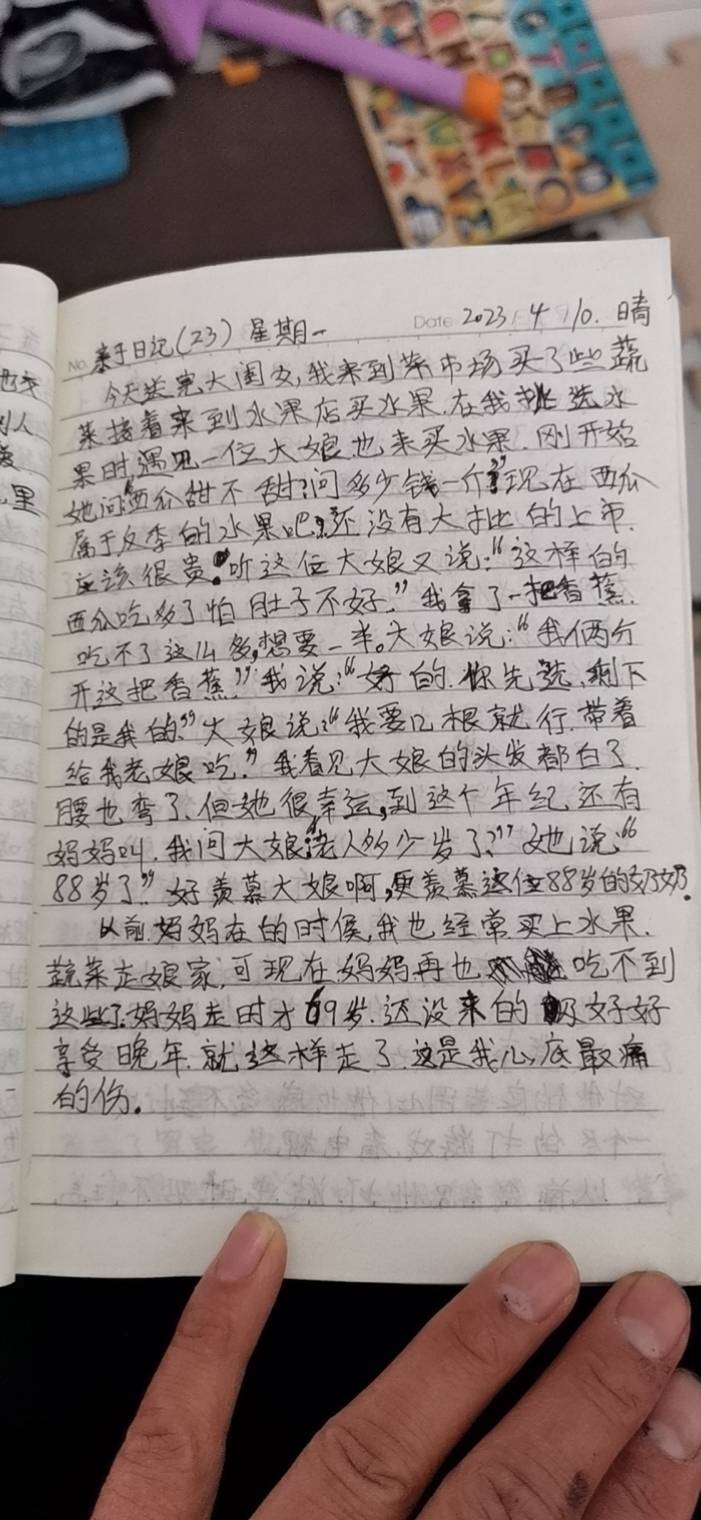 亲子日记(23) 星期一 Date 2023 4 10. 晴
No.
今天送完大闺女,我来到菜市场买了些蔬
菜接着来到水果店买水果.在我挑选水
果时遇见一位大娘也来买水果.刚开始
她问“西瓜甜不甜?问多少钱一斤?”现在西瓜
属于反季的水果吧.还没有大批的上市.
应该很贵.听这位大娘又说:“这样的
西瓜吃多了怕肚子不好.”我拿了一把香蕉.
吃不了这么多,想要一半。大娘说:“我俩分
开这把香蕉.”我说:“好的.你先选,剩下
的是我的.”大娘说:“我要几根就行.带着
给我老娘吃.”我看见大娘的头发都白了.
腰也弯了.但她很幸运,到这个年纪还有
妈妈叫.我问大娘“老人多少岁了?”她说:“
88岁了.”好羡慕大娘啊,更羡慕这位88岁的奶奶.
以前.妈妈在的时候,我也经常买上水果.
蔬菜走娘家,可现在妈妈再也吃不到
这些了.妈妈走时才69岁.还没来的及好好
享受晚年.就这样走了.这是我心底最痛
的伤.
也
别人
里